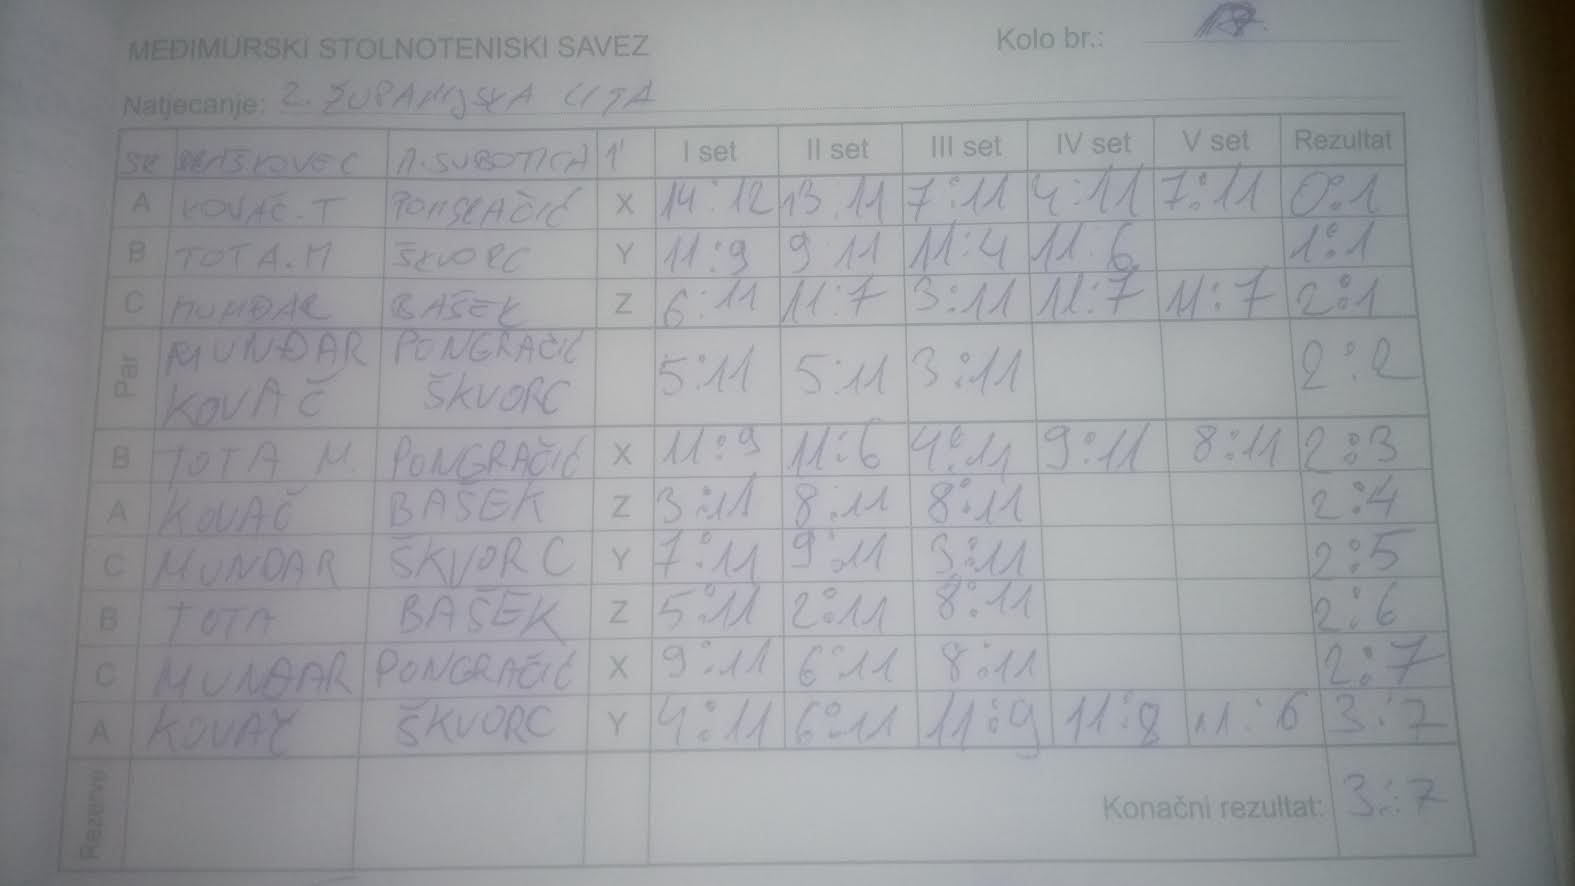 MEĐIMURSKI STOLNOTENISKI SAVEZ
Kolo br.:
Natjecanje: 2. ŽUPANIJSKA LIGA
I set II set III set IV set V set Rezultat
A KOVAČ. T PONGRAČIĆ X 14:12 13:11 7:11 4:11 7:11 0:1
B TOTA. M ŠKVORC Y 11:9 9 11 11:4 11:6 1:1
C MUNĐAR BAŠEK Z 6:11 11:7 3:11 11:7 11:7 2:1
Par MUNĐAR PONGRAČIĆ 5:11 5:11 3:11 2:2
KOVAČ ŠKVORC
B TOTA M. PONGRAČIĆ X 11:9 11:6 4:11 9:11 8:11 2:3
A KOVAČ BAŠEK Z 3:11 8:11 8:11 2:4
C MUNĐAR ŠKVORC Y 7:11 9:11 3:11 2:5
B TOTA BAŠEK Z 5:11 2:11 8:11 2:6
C MUNĐAR PONGRAČIĆ X 9:11 6:11 8:11 2:7
A KOVAČ ŠKVORC Y 4:11 6:11 11:9 11:8 11:6 3:7
Rezerve Konačni rezultat: 3:7